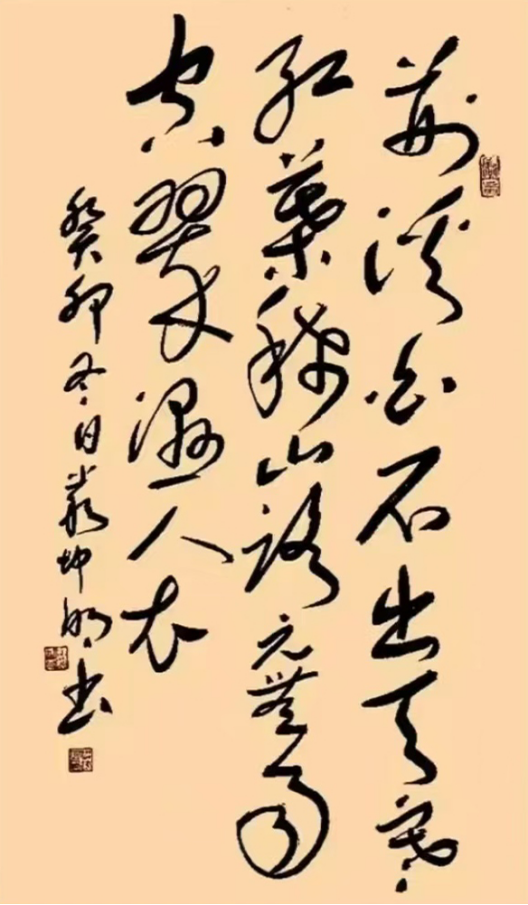 荆溪白石出天寒
红葉稀山路元無雨
空翠湿人衣
癸卯冬日嚴坤书